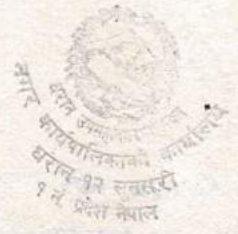 धरान उपमहानगरपालिका
नगर कार्यपालिकाको कार्यालय
धरान १२ सुनसरी
१ नं. प्रदेश नेपाल